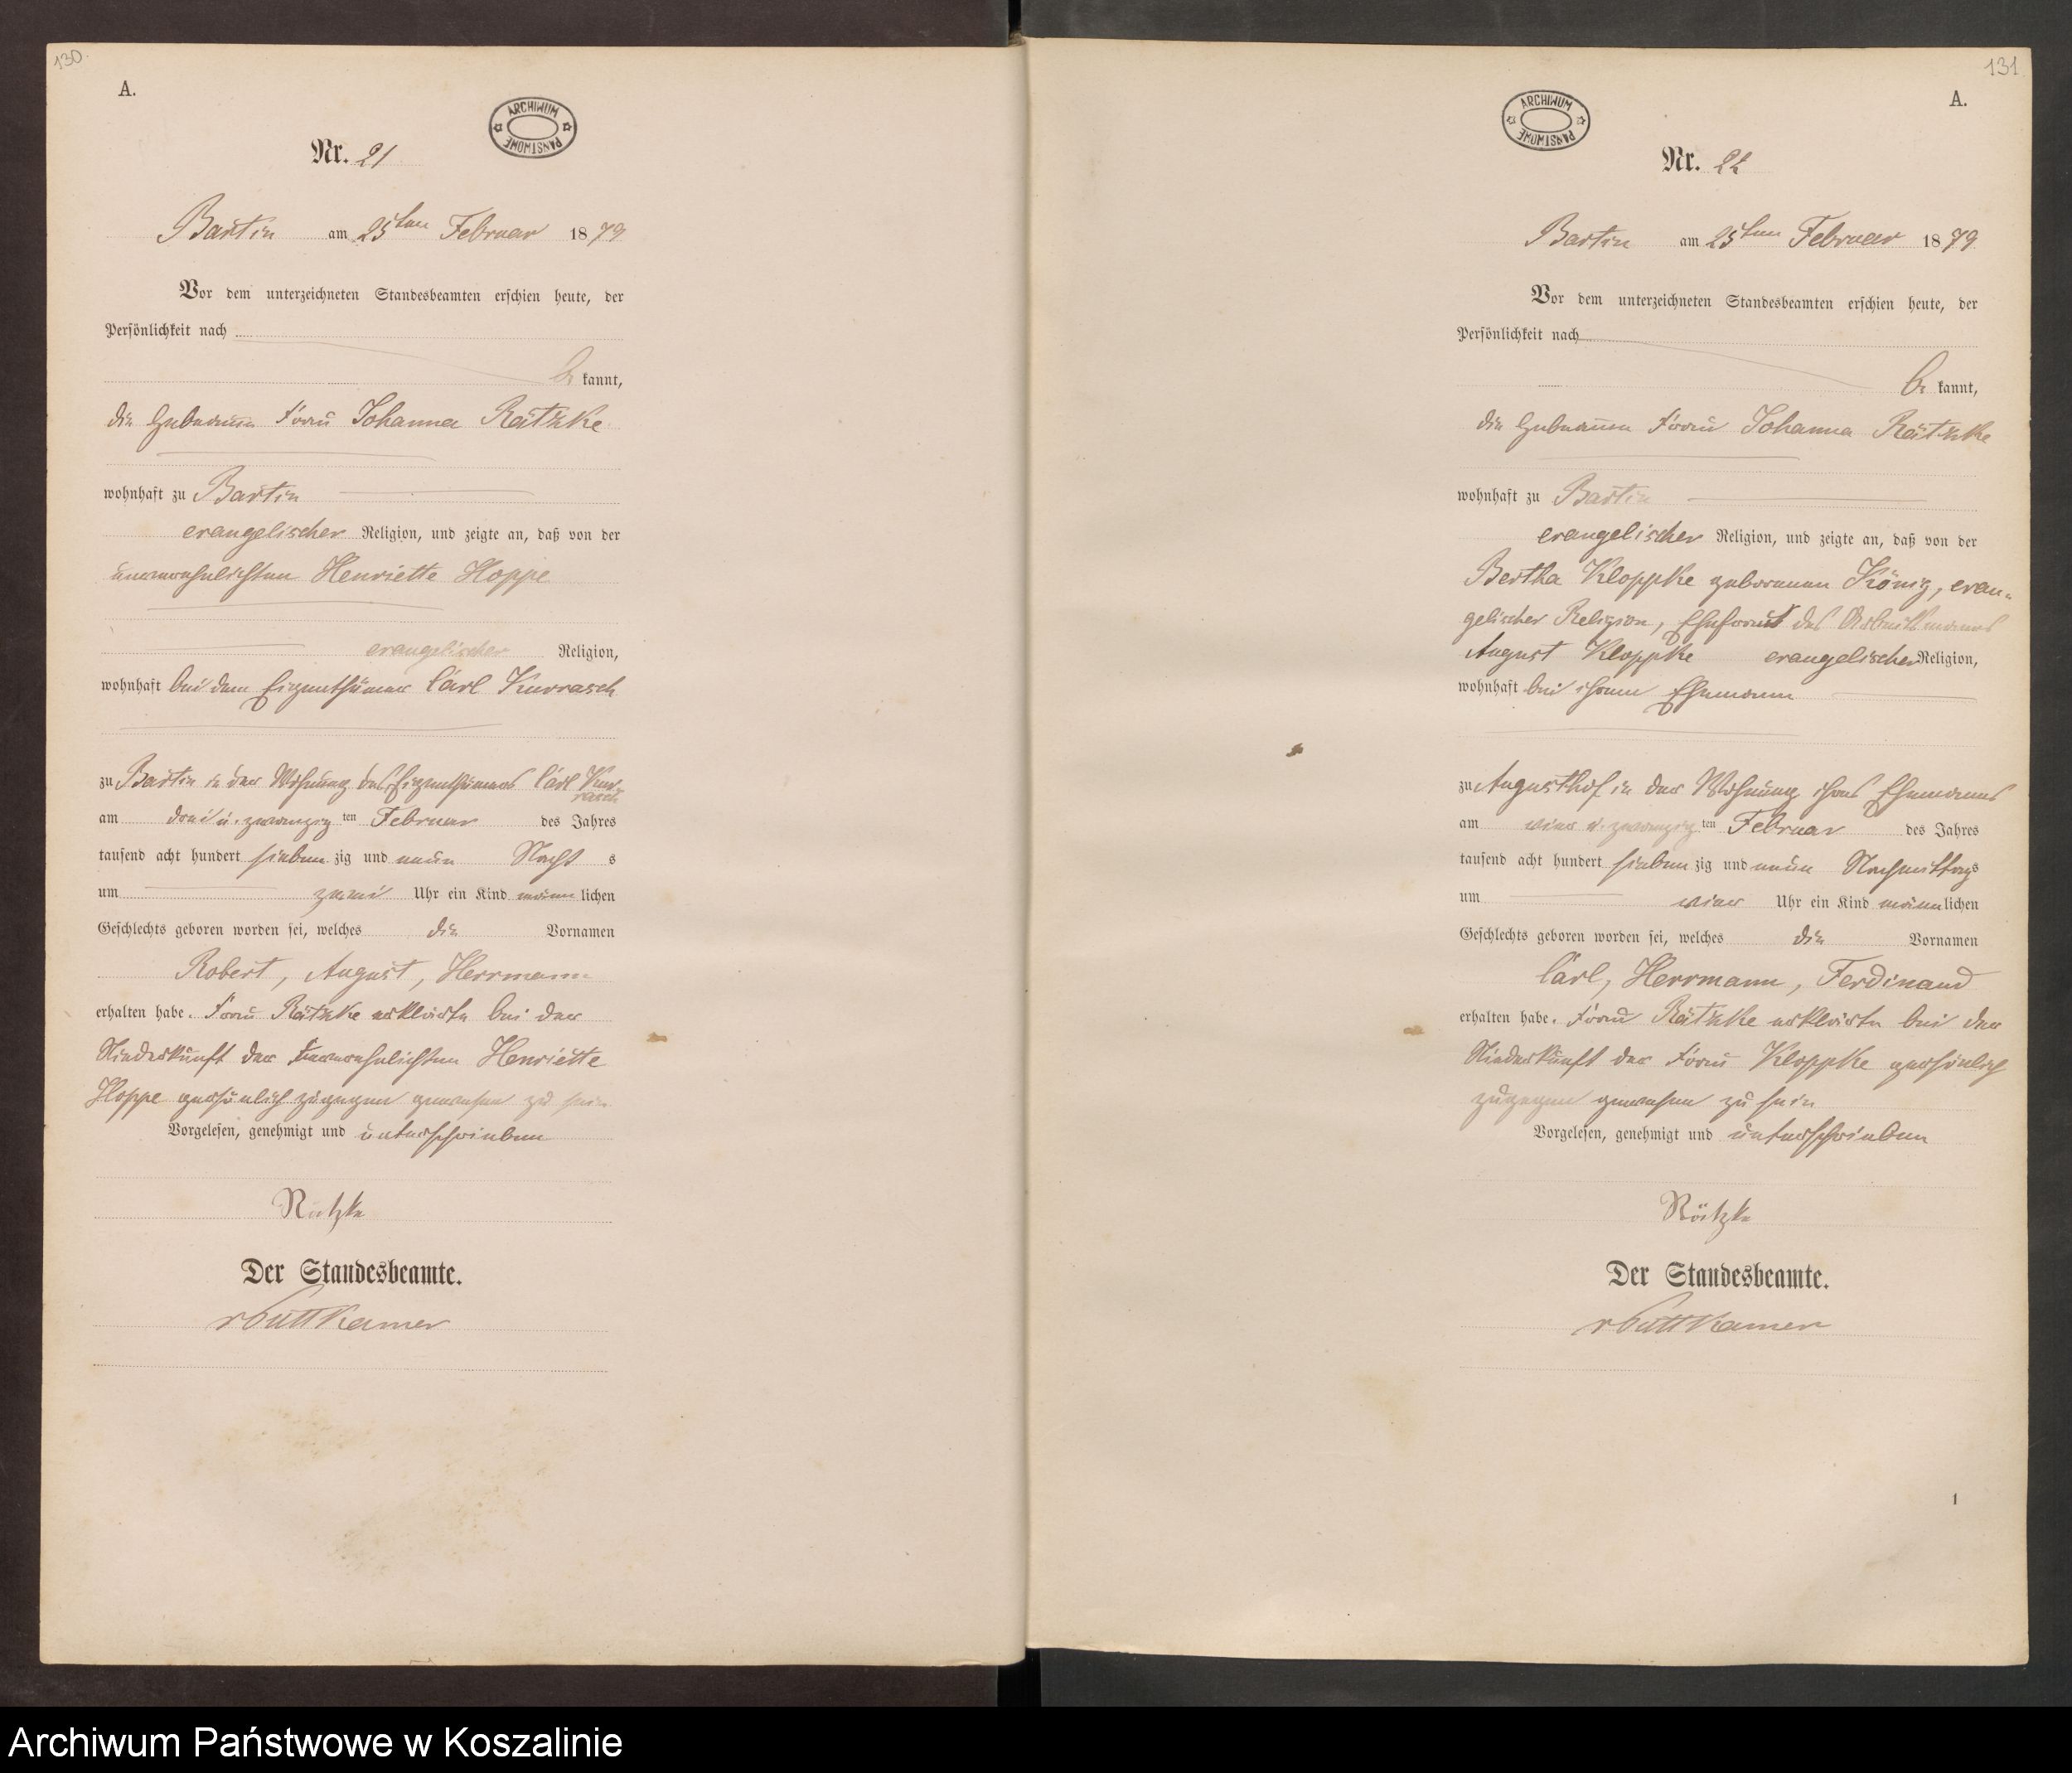 130.
A.
ARCHIWUM PAŃSTWOWE
Nr. 21
Bartin am 25ten Februar 1879
Vor dem unterzeichneten Standesbeamten erschien heute, der
Persönlichkeit nach
be kannt,
die Hebamme Frau Johanna Rätzke
wohnhaft zu Bartin
evangelischer Religion, und zeigte an, daß von der
unverehelichten Henriette Hoppe
evangelischer Religion,
wohnhaft bei dem Eigenthümer Carl Kurrasch
zu Bartin in der Wohnung des Eigenthümers Carl Kur-
rasch
am drei u. zwanzig ten Februar des Jahres
tausend acht hundert sieben zig und neun Nacht s
um zwei Uhr ein Kind männ lichen
Geschlechts geboren worden sei, welches die Vornamen
Robert, August, Herrmann
erhalten habe. Frau Rätzke erklärte bei der
Niederkunft der unverehelichten Henriette
Hoppe persönlich zugegen gewesen zu sein
Vorgelesen, genehmigt und unterschrieben
Rätzke
Der Standesbeamte.
vPuttkamer
131
A.
ARCHIWUM PAŃSTWOWE
Nr. 22
Bartin am 25ten Februar 1879
Vor dem unterzeichneten Standesbeamten erschien heute, der
Persönlichkeit nach
be kannt,
die Hebamme Frau Johanna Rätzke
wohnhaft zu Bartin
evangelischer Religion, und zeigte an, daß von der
Bertha Kloppke geborenen König, evan-
gelischer Religion, Ehefrau des Arbeitsmanns
August Kloppke evangelischer Religion,
wohnhaft bei ihrem Ehemann
zu Augusthof in der Wohnung ihres Ehemannes
am vier u. zwanzig ten Februar des Jahres
tausend acht hundert sieben zig und neun Nachmittags
um vier Uhr ein Kind männlichen
Geschlechts geboren worden sei, welches die Vornamen
Carl, Herrmann, Ferdinand
erhalten habe. Frau Rätzke erklärte bei der
Niederkunft der Frau Kloppke persönlich
zugegen gewesen zu sein
Vorgelesen, genehmigt und unterschrieben
Rätzke
Der Standesbeamte.
vPuttkamer
1
Archiwum Państwowe w Koszalinie